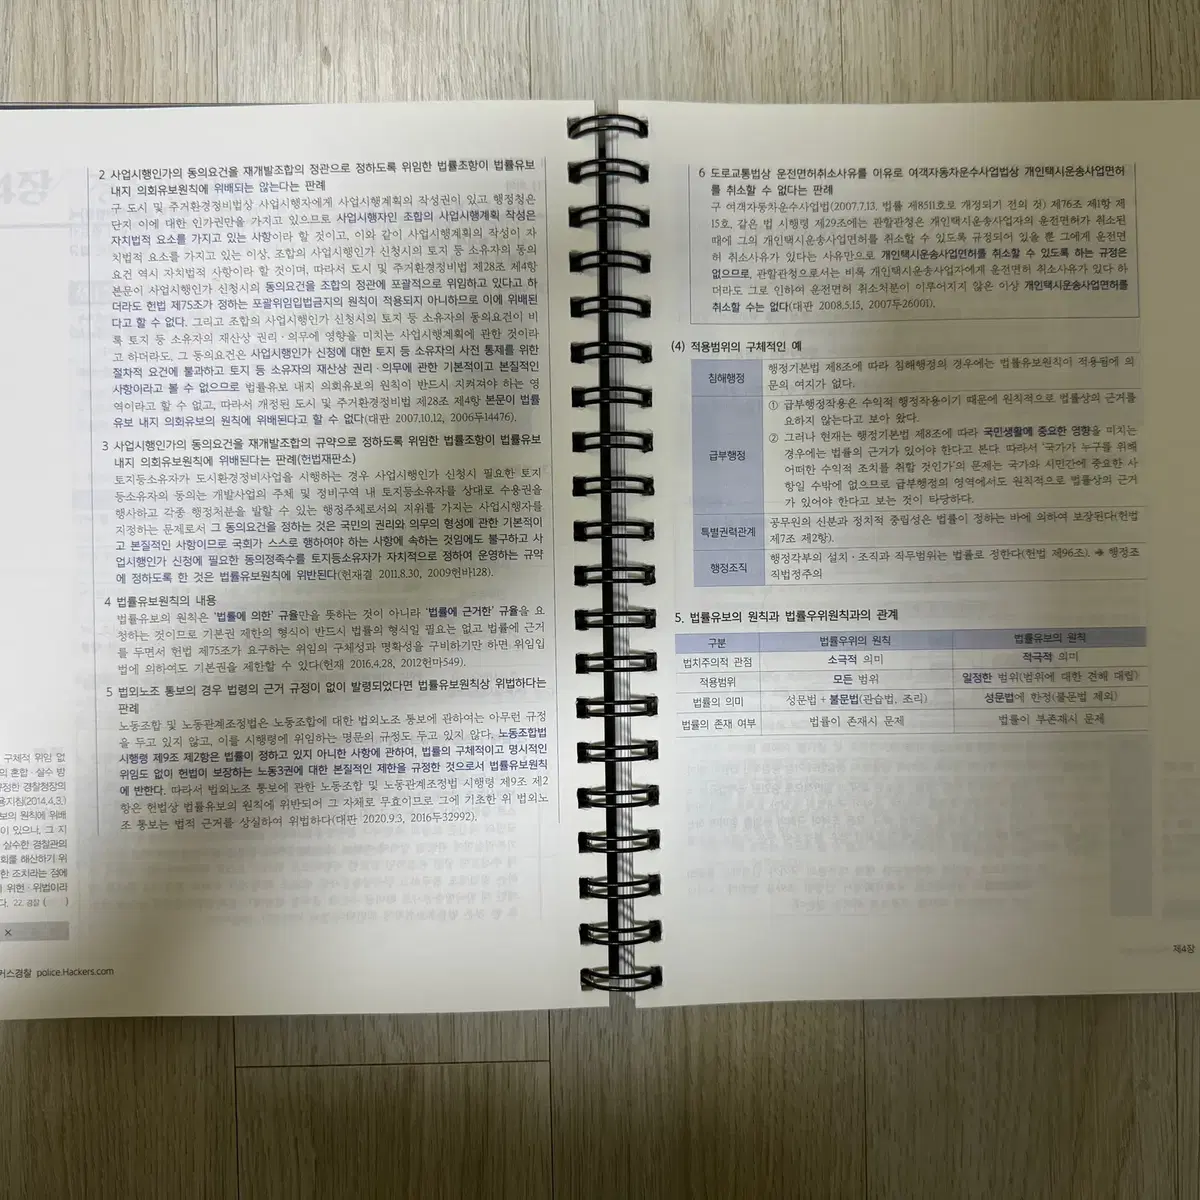 2 사업시행인가의 동의요건을 재개발조합의 정관으로 정하도록 위임한 법률조항이 법률유보
내지 의회유보원칙에 위배되는 않는다는 판례
구 도시 및 주거환경정비법상 사업시행자에게 사업시행계획의 작성권이 있고 행정청은
단지 이에 대한 인가권만을 가지고 있으므로 사업시행자인 조합의 사업시행계획 작성은
자치법적 요소를 가지고 있는 사항이라 할 것이고, 이와 같이 사업시행계획의 작성이 자
치법적 요소를 가지고 있는 이상, 조합의 사업시행인가 신청시의 토지 등 소유자의 동의
요건 역시 자치법적 사항이라 할 것이며, 따라서 도시 및 주거환경정비법 제28조 제4항
본문이 사업시행인가 신청시의 동의요건을 조합의 정관에 포괄적으로 위임하고 있다고 하
더라도 헌법 제75조가 정하는 포괄위임입법금지의 원칙이 적용되지 아니하므로 이에 위배된
다고 할 수 없다. 그리고 조합의 사업시행인가 신청시의 토지 등 소유자의 동의요건이 비
록 토지 등 소유자의 재산상 권리·의무에 영향을 미치는 사업시행계획에 관한 것이라
고 하더라도, 그 동의요건은 사업시행인가 신청에 대한 토지 등 소유자의 사전 통제를 위한
절차적 요건에 불과하고 토지 등 소유자의 재산상 권리·의무에 관한 기본적이고 본질적인
사항이라고 볼 수 없으므로 법률유보 내지 의회유보의 원칙이 반드시 지켜져야 하는 영
역이라고 할 수 없고, 따라서 개정된 도시 및 주거환경정비법 제28조 제4항 본문이 법률
유보 내지 의회유보의 원칙에 위배된다고 할 수 없다(대판 2007.10.12, 2006두14476).
3 사업시행인가의 동의요건을 재개발조합의 규약으로 정하도록 위임한 법률조항이 법률유보
내지 의회유보원칙에 위배된다는 판례(헌법재판소)
토지등소유자가 도시환경정비사업을 시행하는 경우 사업시행인가 신청시 필요한 토지
등소유자의 동의는 개발사업의 주체 및 정비구역 내 토지등소유자를 상대로 수용권을
행사하고 각종 행정처분을 발할 수 있는 행정주체로서의 지위를 가지는 사업시행자를
지정하는 문제로서 그 동의요건을 정하는 것은 국민의 권리와 의무의 형성에 관한 기본적이
고 본질적인 사항이므로 국회가 스스로 행하여야 하는 사항에 속하는 것임에도 불구하고 사
업시행인가 신청에 필요한 동의정족수를 토지등소유자가 자치적으로 정하여 운영하는 규약
에 정하도록 한 것은 법률유보원칙에 위반된다(헌재결 2011.8.30, 2009헌바128).
4 법률유보원칙의 내용
법률유보의 원칙은 '법률에 의한' 규율만을 뜻하는 것이 아니라 '법률에 근거한' 규율을 요
청하는 것이므로 기본권 제한의 형식이 반드시 법률의 형식일 필요는 없고 법률에 근거
를 두면서 헌법 제75조가 요구하는 위임의 구체성과 명확성을 구비하기만 하면 위임입
법에 의하여도 기본권을 제한할 수 있다(헌재 2016.4.28, 2012헌마549).
5 법외노조 통보의 경우 법령의 근거 규정이 없이 발령되었다면 법률유보원칙상 위법하다는
판례
노동조합 및 노동관계조정법은 노동조합에 대한 법외노조 통보에 관하여는 아무런 규정
을 두고 있지 않고, 이를 시행령에 위임하는 명문의 규정도 두고 있지 않다. 노동조합법
시행령 제9조 제2항은 법률이 정하고 있지 아니한 사항에 관하여, 법률의 구체적이고 명시적인
위임도 없이 헌법이 보장하는 노동3권에 대한 본질적인 제한을 규정한 것으로서 법률유보원칙
에 반한다. 따라서 법외노조 통보에 관한 노동조합 및 노동관계조정법 시행령 제9조 제2
항은 헌법상 법률유보의 원칙에 위반되어 그 자체로 무효이므로 그에 기초한 위 법외노
조 통보는 법적 근거를 상실하여 위법하다(대판 2020.9.3, 2016두32992).
구체적 위임 없
의 혼합·살수 방
규정한 경찰청장의
용지침(2014.4.3.)
보의 원칙에 위배
이 있으나, 그 지
살수한 경찰관의
회를 해산하기 위
한 조치라는 점에
위헌·위법이라
다. 22. 경찰 ( )
×
커스경찰 police.Hackers.com
6 도로교통법상 운전면허취소사유를 이유로 여객자동차운수사업법상 개인택시운송사업면허
를 취소할 수 없다는 판례
구 여객자동차운수사업법(2007.7.13, 법률 제8511호로 개정되기 전의 것) 제76조 제1항 제
15호, 같은 법 시행령 제29조에는 관할관청은 개인택시운송사업자의 운전면허가 취소된
때에 그의 개인택시운송사업면허를 취소할 수 있도록 규정되어 있을 뿐 그에게 운전면
허 취소사유가 있다는 사유만으로 개인택시운송사업면허를 취소할 수 있도록 하는 규정은
없으므로, 관할관청으로서는 비록 개인택시운송사업자에게 운전면허 취소사유가 있다 하
더라도 그로 인하여 운전면허 취소처분이 이루어지지 않은 이상 개인택시운송사업면허를
취소할 수는 없다(대판 2008.5.15, 2007두26001).
(4) 적용범위의 구체적인 예
침해행정 행정기본법 제8조에 따라 침해행정의 경우에는 법률유보원칙이 적용됨에 의
문의 여지가 없다.
① 급부행정작용은 수익적 행정작용이기 때문에 원칙적으로 법률상의 근거를
요하지 않는다고 보아 왔다.
② 그러나 현재는 행정기본법 제8조에 따라 국민생활에 중요한 영향을 미치는
경우에는 법률의 근거가 있어야 한다고 본다. 따라서 '국가가 누구를 위해
급부행정 어떠한 수익적 조치를 취할 것인가'의 문제는 국가와 시민간에 중요한 사
항일 수밖에 없으므로 급부행정의 영역에서도 원칙적으로 법률상의 근거
가 있어야 한다고 보는 것이 타당하다.
특별권력관계 공무원의 신분과 정치적 중립성은 법률이 정하는 바에 의하여 보장된다(헌법
제7조 제2항).
행정조직 행정각부의 설치·조직과 직무범위는 법률로 정한다(헌법 제96조). ➔ 행정조
직법정주의
5. 법률유보의 원칙과 법률우위원칙과의 관계
구분 법률우위의 원칙 법률유보의 원칙
법치주의적 관점 소극적 의미 적극적 의미
적용범위 모든 범위 일정한 범위(범위에 대한 견해 대립)
법률의 의미 성문법 + 불문법(관습법, 조리) 성문법에 한정(불문법 제외)
법률의 존재 여부 법률이 존재시 문제 법률이 부존재시 문제
제4장